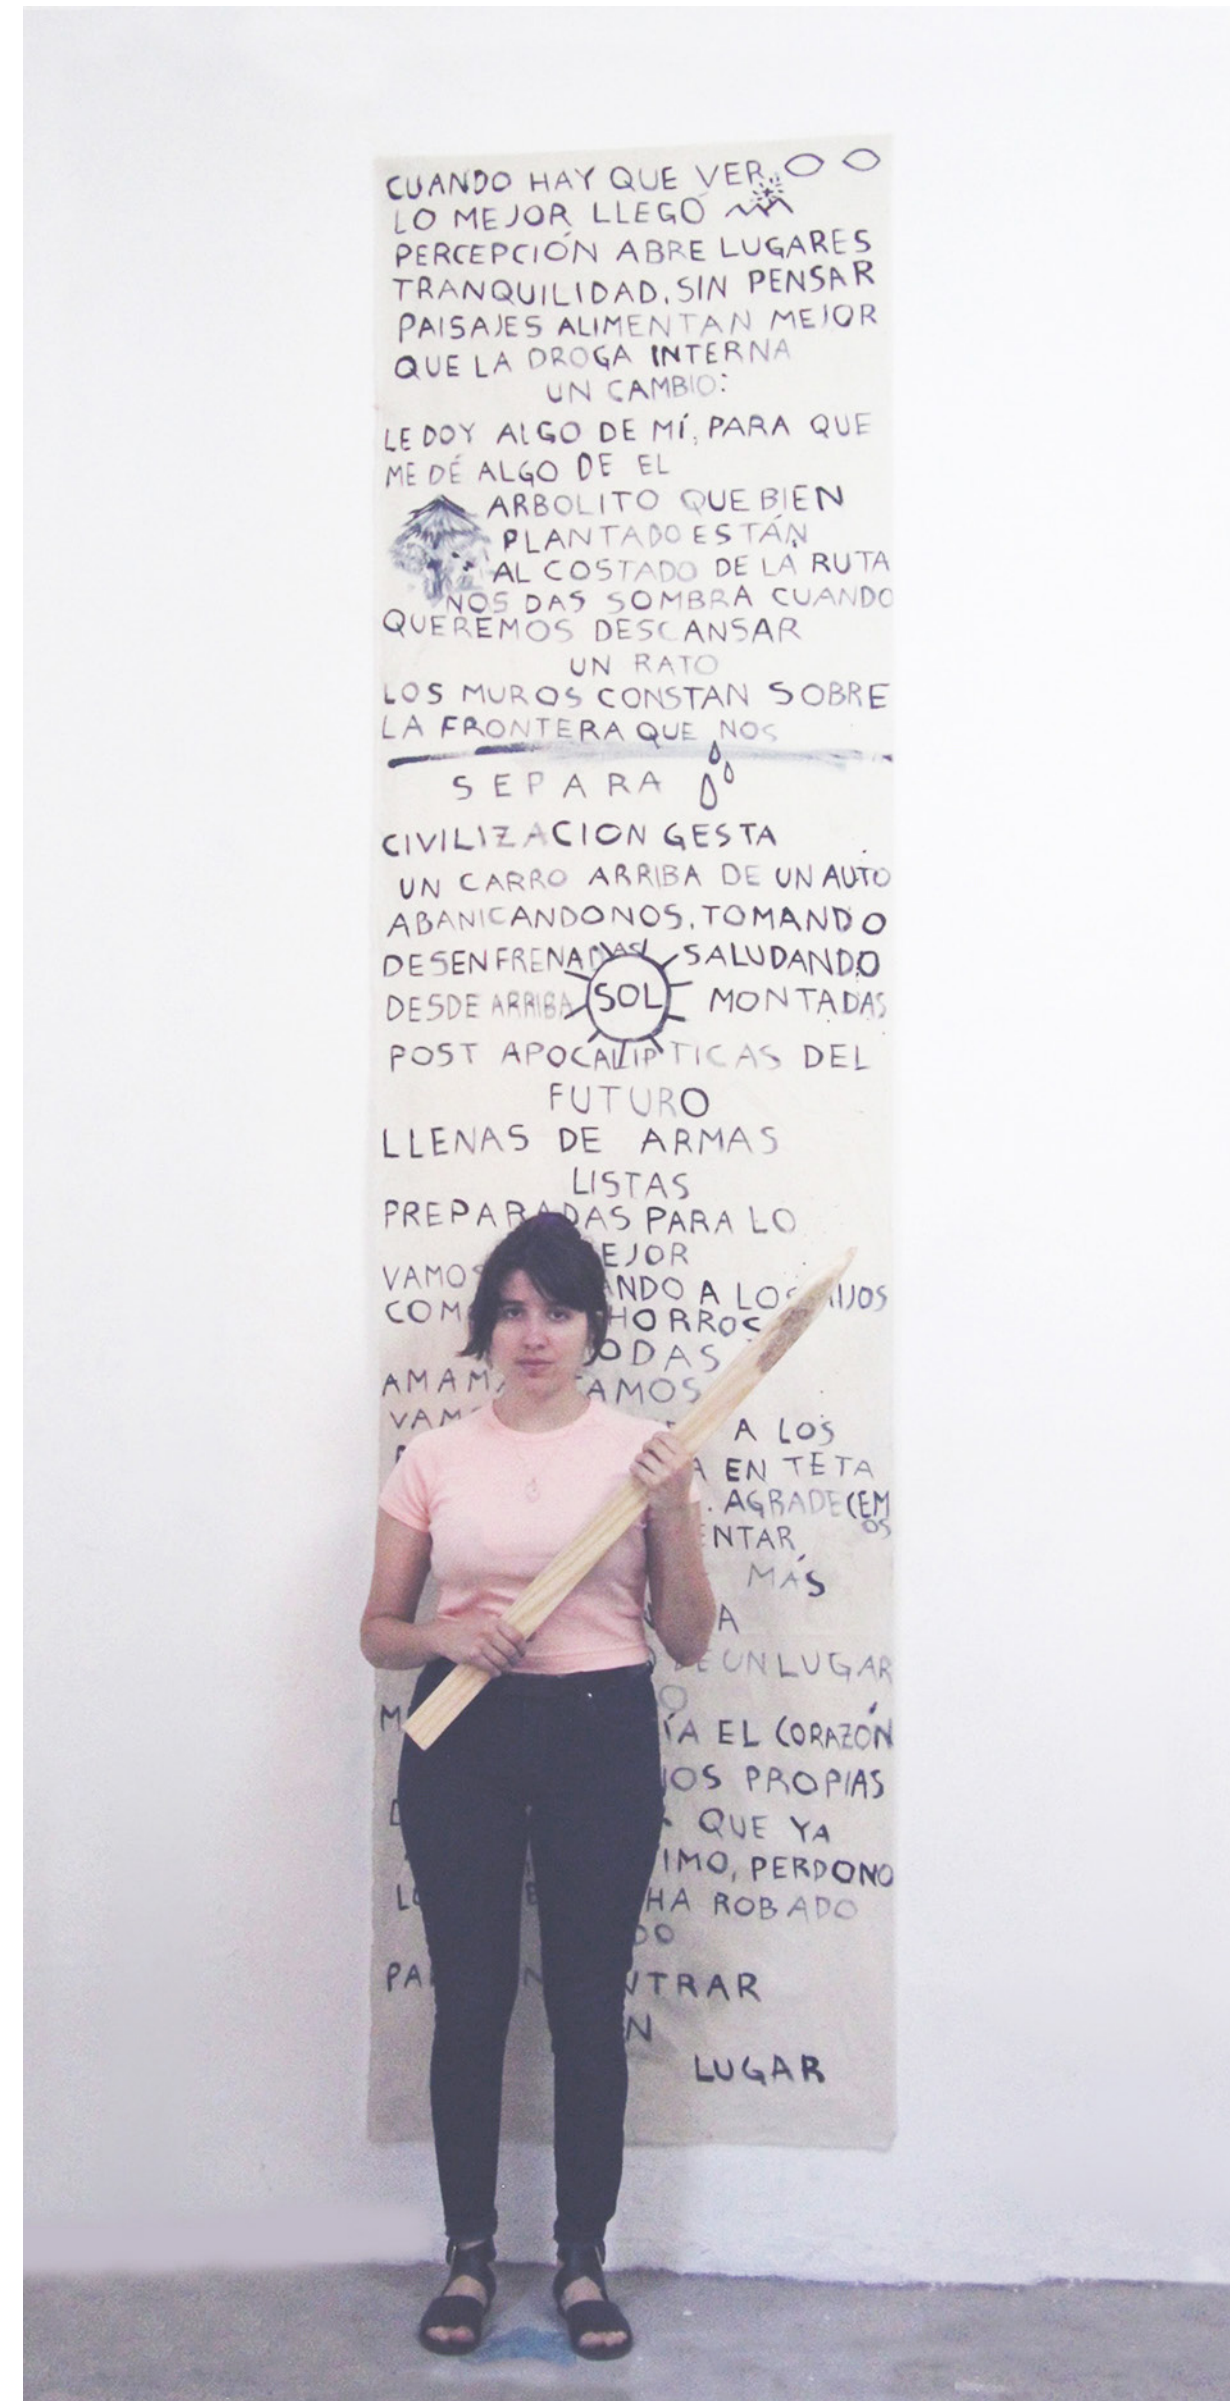 CUANDO HAY QUE VER
LO MEJOR LLEGÓ
PERCEPCIÓN ABRE LUGARES
TRANQUILIDAD, SIN PENSAR
PAISAJES ALIMENTAN MEJOR
QUE LA DROGA INTERNA
UN CAMBIO:
LE DOY ALGO DE MÍ, PARA QUE
ME DÉ ALGO DE EL
ARBOLITO QUE BIEN
PLANTADO ESTÁN
AL COSTADO DE LA RUTA
NOS DAS SOMBRA CUANDO
QUEREMOS DESCANSAR
UN RATO
LOS MUROS CONSTAN SOBRE
LA FRONTERA QUE NOS
SEPARA
CIVILIZACION GESTA
UN CARRO ARRIBA DE UN AUTO
ABANICANDONOS, TOMANDO
DESENFRENADAS SALUDANDO
DESDE ARRIBA SOL MONTADAS
POST APOCALIPTICAS DEL
FUTURO
LLENAS DE ARMAS
LISTAS
PREPARADAS PARA LO
EJOR
VAMOS ANDO A LOS HIJOS
COM HORROS
ODAS
AMAM TAMOS
VAM A LOS
A EN TETA
AGRADECEMOS
ENTAR
MÁS
A
DE UN LUGAR
O
M ÍA EL CORAZÓN
OS PROPIAS
QUE YA
IMO, PERDONO
LO HA ROBADO
DO
PA N NTRAR
N
LUGAR